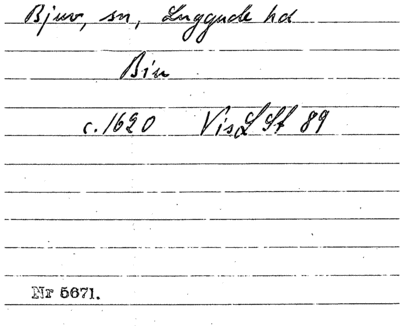 Bjuv, sn, Luggude hd
Biu
c. 1620 VisLSt 89
Nr 5671.